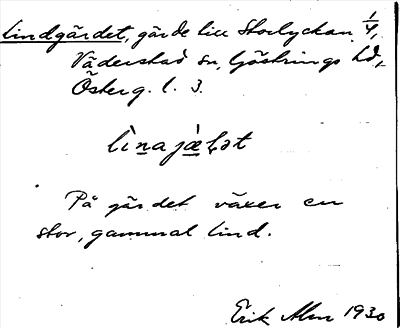 Lindgärdet, gärde till Storlyckan 1/4,
Väderstad sn, Göstrings hd,
Österg. l. 3.
lìnajæ̀ḷət
På gärdet växer en
stor, gammal lind.
Erik Alm 1930